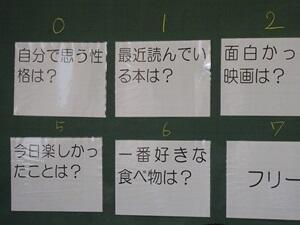 0
1
2
自分で思う性
格は？
最近読んでい
る本は？
面白かっ
映画は？
5
6
7
今日楽しかっ
たことは？
一番好きな
食べ物は？
フリー